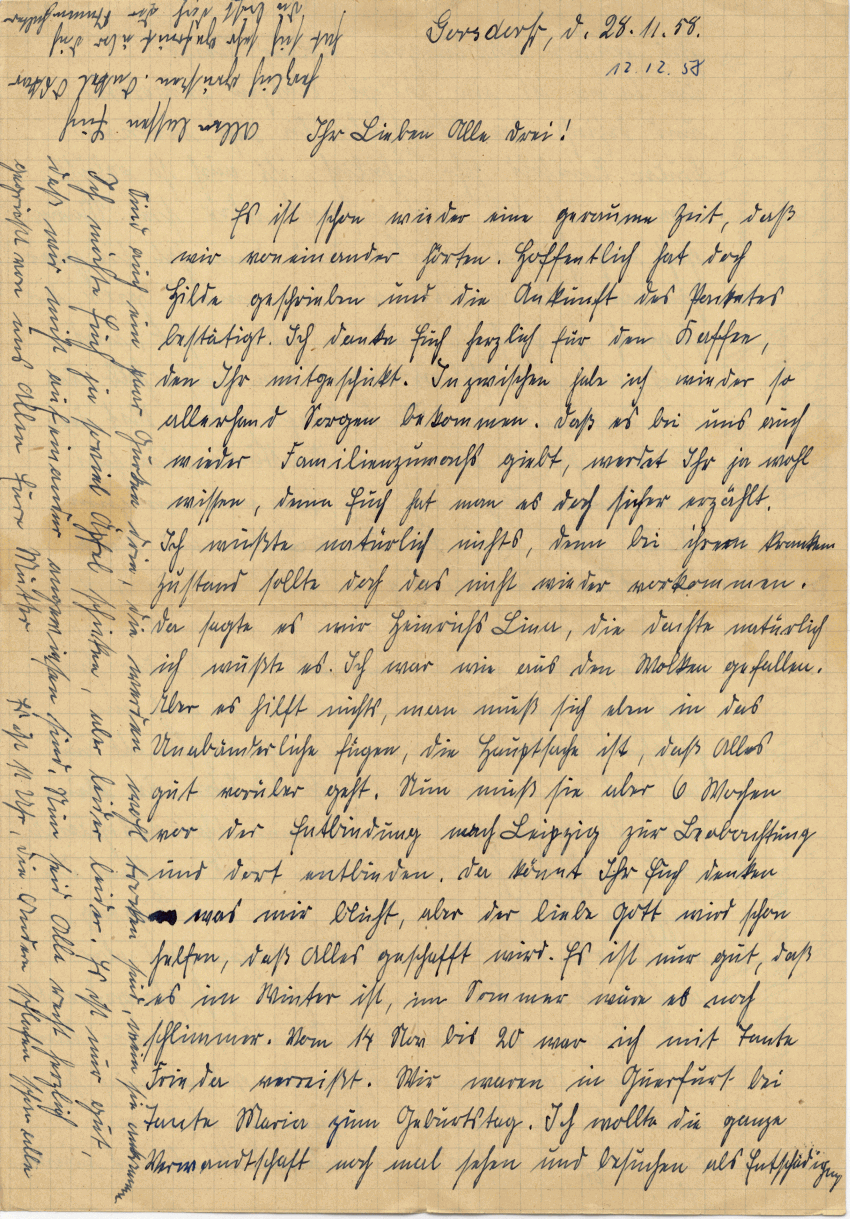 Gorsdorf, d. 28.11.58.
12.12.58
Ihr Lieben Alle drei!
Es ist schon wieder eine geraume Zeit, daß
wir voneinander hörten. Hoffentlich hat doch
Hilde geschrieben und die Ankunft des Paketes
bestätigt. Ich danke Euch herzlich für den Kaffee,
den Ihr mitgeschickt. Inzwischen habe ich wieder so
allerhand Sorgen bekommen. Daß es bei uns auch
wieder Familienzuwachs giebt, werdet Ihr ja wohl
wissen, denn Euch hat man es doch sicher erzählt.
Ich wußte natürlich nichts, denn bei ihrem kranken
Zustand sollte doch das nicht wieder vorkommen.
Da sagte es mir Heinrichs Lina, die dachte natürlich
ich wußte es. Ich war wie aus den Wolken gefallen.
Aber es hilft nichts, man muß sich eben in das
Unabänderliche fügen, die Hauptsache ist, daß Alles
gut vorüber geht. Nun muß sie aber 6 Wochen
vor der Entbindung nach Leipzig zur Beobachtung
und dort entbinden. Da könnt Ihr Euch denken
was mir blüht, aber der liebe Gott wird schon
helfen, daß Alles geschafft wird. Es ist nur gut, daß
es im Winter ist, im Sommer wäre es noch
schlimmer. Vom 14 Nov bis 20 war ich mit Tante
Frieda verreißt. Wir waren in Querfurt bei
Tante Maria zum Geburtstag. Ich wollte die ganze
Verwandtschaft noch mal sehen und besuchen als Entschädigung
Sind auch ein paar Gurken drin, die werden wohl trocken sind, wenn sie ankommen
Ich möchte Euch ja soviel Äpfel schicken, aber leider leider. Es ist nur gut,
daß wir nicht aufeinander angewiesen sind. Nun seid Alle recht herzlich
gegrüßt von uns Allen Eure Mutter Es ist 11 Uhr, die Andern schlafen schon alle
Allen lassen Euch
herzlich grüßen. Onkel Oskar
hat sich sehr gefreut über die